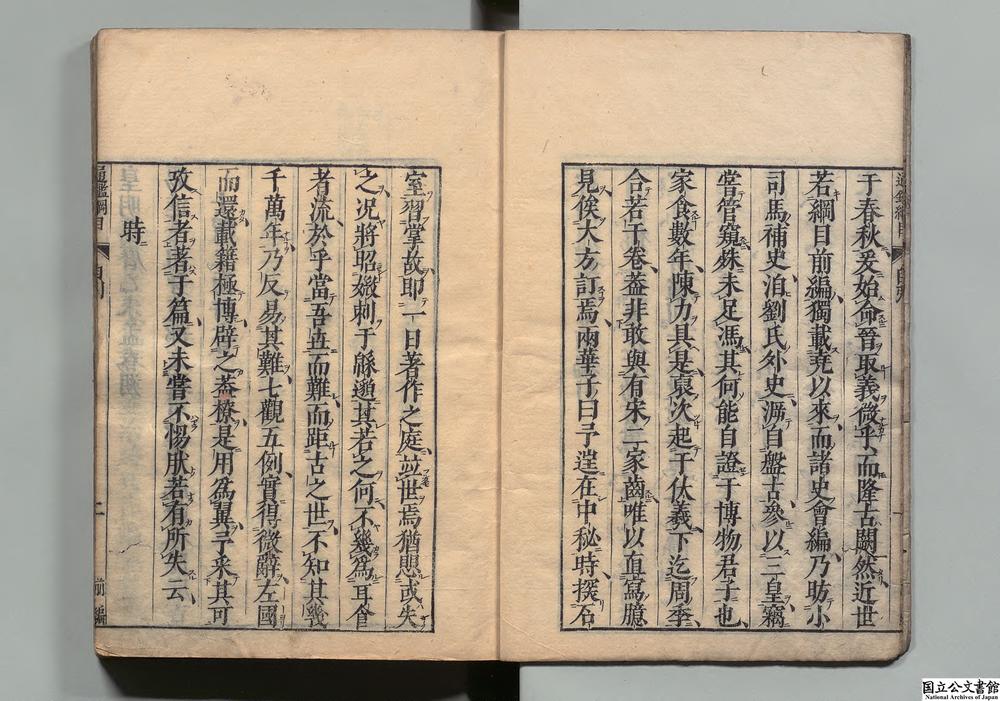 于春秋爰始命晉取義微乎而隆古闕然近世
若綱目前編獨載堯以來而諸史會編乃昉小
司馬補史洎劉氏外史遡自盤古參以三皇竊
嘗管窺殊未足馮其何能自證于博物君子也
家食數年陳力具是裒次起于伏羲下迄周季
合若干卷葢非敢與有宋二家齒唯以直寫臆
見俟大方訂焉兩華子曰予遑在中秘時探石
室習掌故即一日著作之庭竝世焉猶悲或失
之况將昭媺刺于緜邈其若之何不幾爲耳食
者流於乎當吾世而難而距古之世不知其幾
千萬年乃反易其難七觀五例實得微辭左國
而還載籍極博辟之葢橑是用爲翼予釆其可
攷信者著于篇又未嘗不惕肰若有所失云
時
通鑑綱目
自列
二
前編
国立公文書館
National Archives of Japan